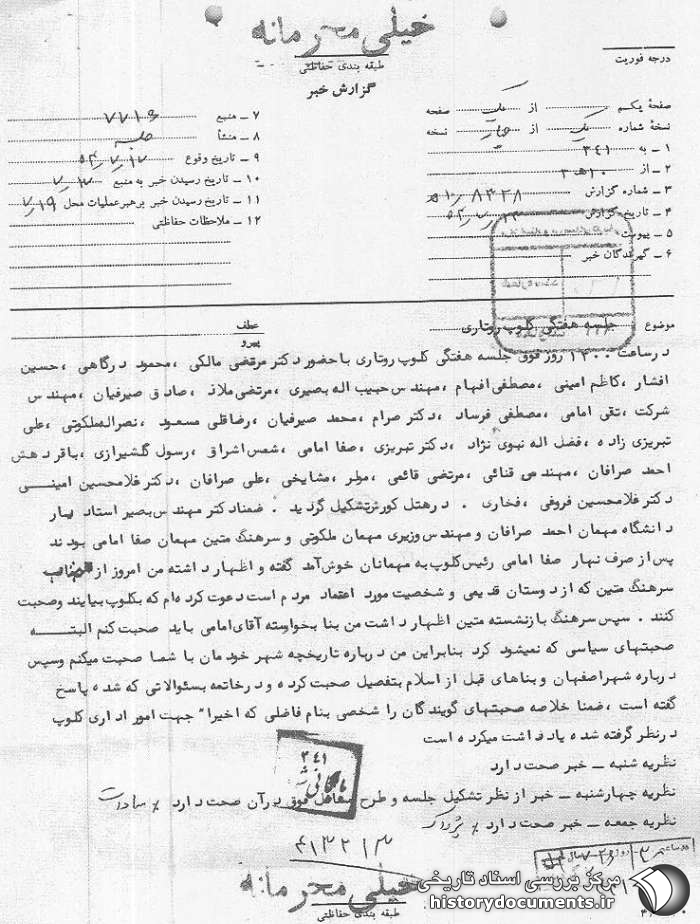 خیلی محرمانه
طبقه بندی حفاظتی
درجه فوریت
گزارش خبر
صفحهٔ یکم از یک صفحه
نسخهٔ شماره یک از چهار نسخه
۱ ـ به ۳۴۱
۲ ـ از ۱۰ه۳
۳ ـ شماره گزارش ۸۴۳۸/۱۰ه
۴ ـ تاریخ گزارش
۵ ـ پیوست
۶ ـ گیرندگان خبر
۷ ـ منبع ۷۷۱۶
۸ ـ منشأ جلسه
۹ ـ تاریخ وقوع ۵۴/۷/۱۷
۱۰ ـ تاریخ رسیدن خبر به منبع ۷/۱۷
۱۱ ـ تاریخ رسیدن خبر برهبر عملیات محل ۷/۱۹
۱۲ ـ ملاحظات حفاظتی
موضوع جلسه هفتگی کلوپ روتاری
عطف
پیرو
در ساعت ۱۴۰۰ روز فوق جلسه هفتگی کلوپ روتاری با حضور دکتر مرتضی مالکی ، محمود درگاهی ، حسین
افشار ، کاظم امینی ، مصطفی افهام ، مهندس حبیب اله بصیری ، مرتضی ملاذ ، صادق صیرفیان ، مهندس
شرکت ، تقی امامی ، مصطفی فرساد ، دکتر صرام ، محمد صیرفیان ، رضاقلی مسعود ، نصراله ملکوتی ، علی
تبریزی زاده ، فضل اله نبوی نژاد ، دکتر تبریزی ، صفا امامی ، شمس اشراق ، رسول گلشیرازی ، باقر دهش
احمد صرافان ، مهندس قنائی ، مرتضی قائمی ، مولر ، مشایخی ، علی صرافان ، دکتر غلامحسین امینی
دکتر غلامحسین فروغی ، فخاری . در هتل کورش تشکیل گردید . ضمنا دکتر مهندس بصیر استاد یار
دانشگاه مهمان احمد صرافان و مهندس وزیری مهمان ملکوتی و سرهنگ متین مهمان صفا امامی بودند
پس از صرف نهار صفا امامی رئیس کلوپ به مهمانان خوش آمد گفته و اظهار داشته من امروز از جناب
سرهنگ متین که از دوستان قدیمی و شخصیت مورد اعتماد مردم است دعوت کرده ام که بکلوپ بیایند وصحبت
کنند . سپس سرهنگ بازنشسته متین اظهار داشت من بنا بخواسته آقای امامی باید صحبت کنم البته
صحبتهای سیاسی که نمیشود کرد بنابراین من درباره تاریخچه شهر خودمان با شما صحبت میکنم وسپس
درباره شهر اصفهان و بناهای قبل از اسلام بتفصیل صحبت کرده و در خاتمه بسئوالاتی که شده پاسخ
گفته است ، ضمنا خلاصه صحبتهای گویندگان را شخصی بنام فاضلی که اخیرا" جهت امور اداری کلوپ
در نظر گرفته شده یادداشت میکرده است
نظریه شنبه ـ خبر صحت دارد
نظریه چهارشنبه ـ خبر از نظر تشکیل جلسه و طرح مسائل فوق در آن صحت دارد
نظریه جمعه ـ خبر صحت دارد
۳۴۱
بایگانی شد
۴۱۳۲۱۳
خیلی محرمانه
طبقه بندی حفاظتی
مرکز بررسی اسناد تاریخی
historydocuments.ir